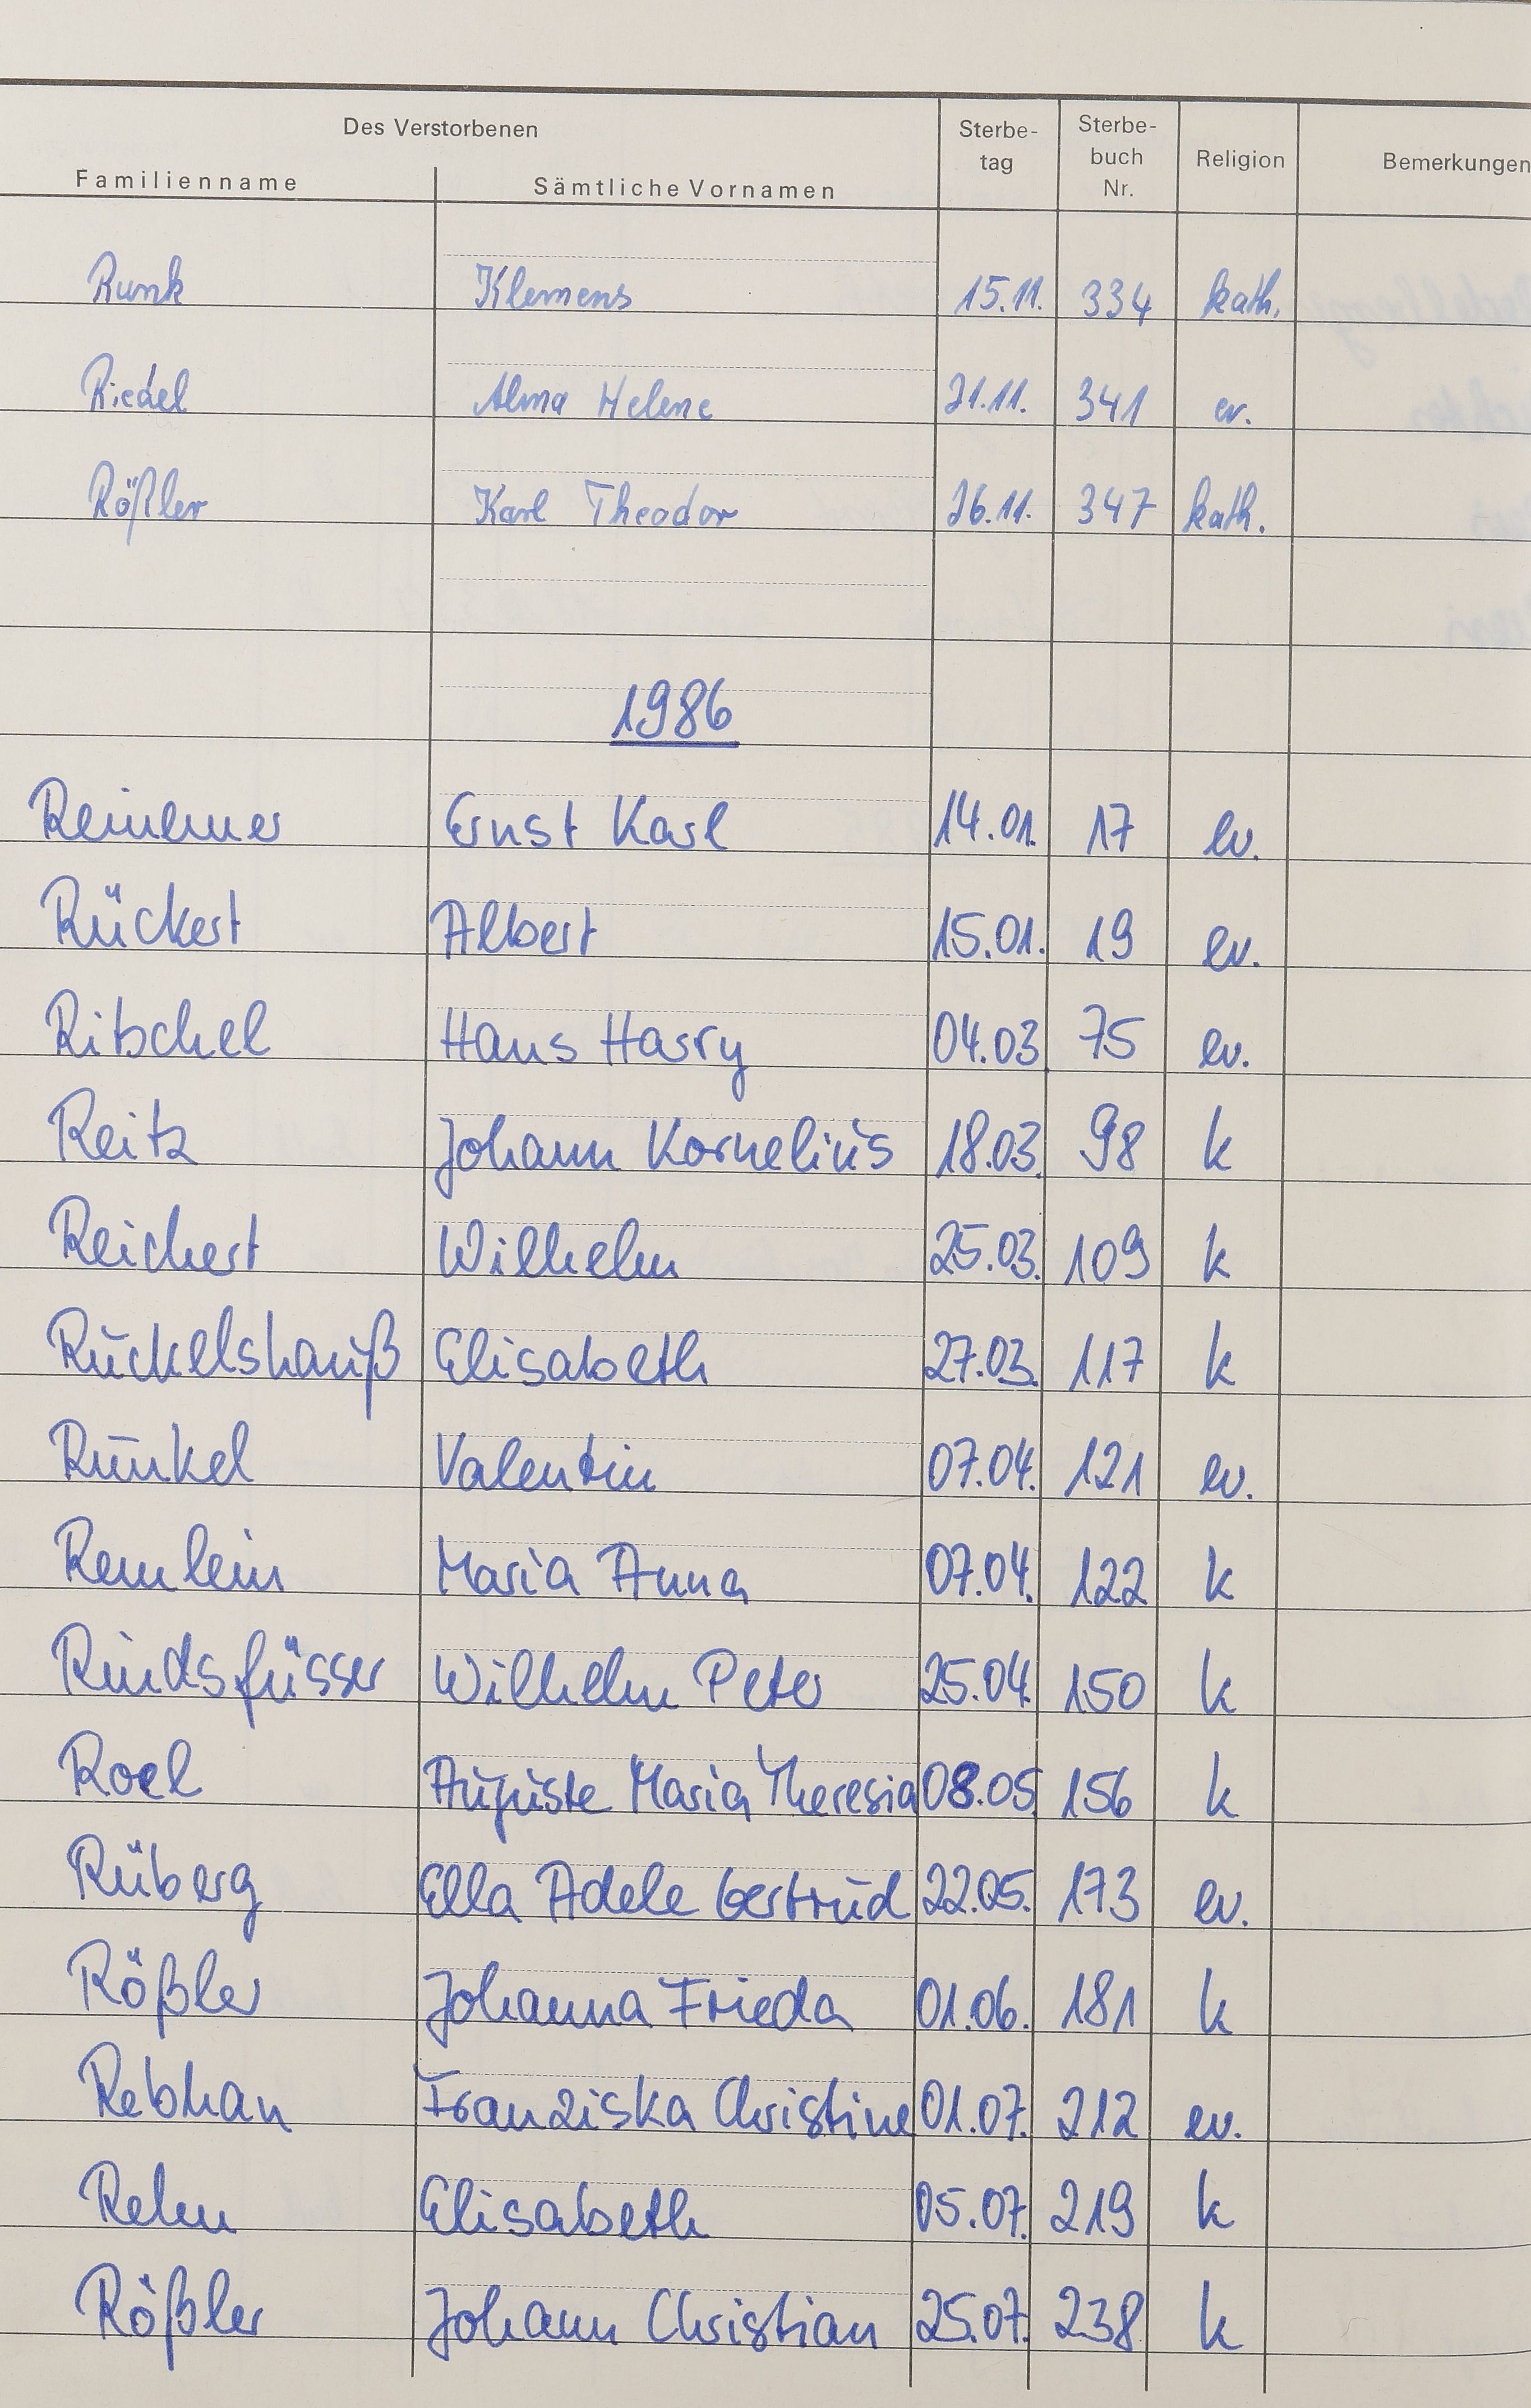 Des Verstorbenen
Familienname Sämtliche Vornamen Sterbe- tag Sterbe- buch Nr. Religion Bemerkungen
Runk Klemens 15.11. 334 kath.
Riedel Alma Helene 21.11. 341 ev.
Rößler Karl Theodor 26.11. 347 kath.
1986
Reinemer Ernst Karl 14.01. 17 ev.
Rückert Albert 15.01. 19 ev.
Ritschel Hans Harry 04.03. 75 ev.
Reitz Johann Kornelius 18.03. 98 k
Reichert Wilhelm 25.03. 109 k
Rückelshauß Elisabeth 27.03. 117 k
Runkel Valentin 07.04. 121 ev.
Remlein Maria Anna 07.04. 122 k
Rindsfüsser Wilhelm Peter 25.04. 150 k
Roel Auguste Maria Theresia 08.05. 156 k
Rüberg Ella Adele Gertrud 22.05. 173 ev.
Rößler Johanna Frieda 01.06. 181 k
Rebhan Franziska Christine 01.07. 212 ev.
Rehm Elisabeth 05.07. 219 k
Rößler Johann Christian 25.07. 238 k